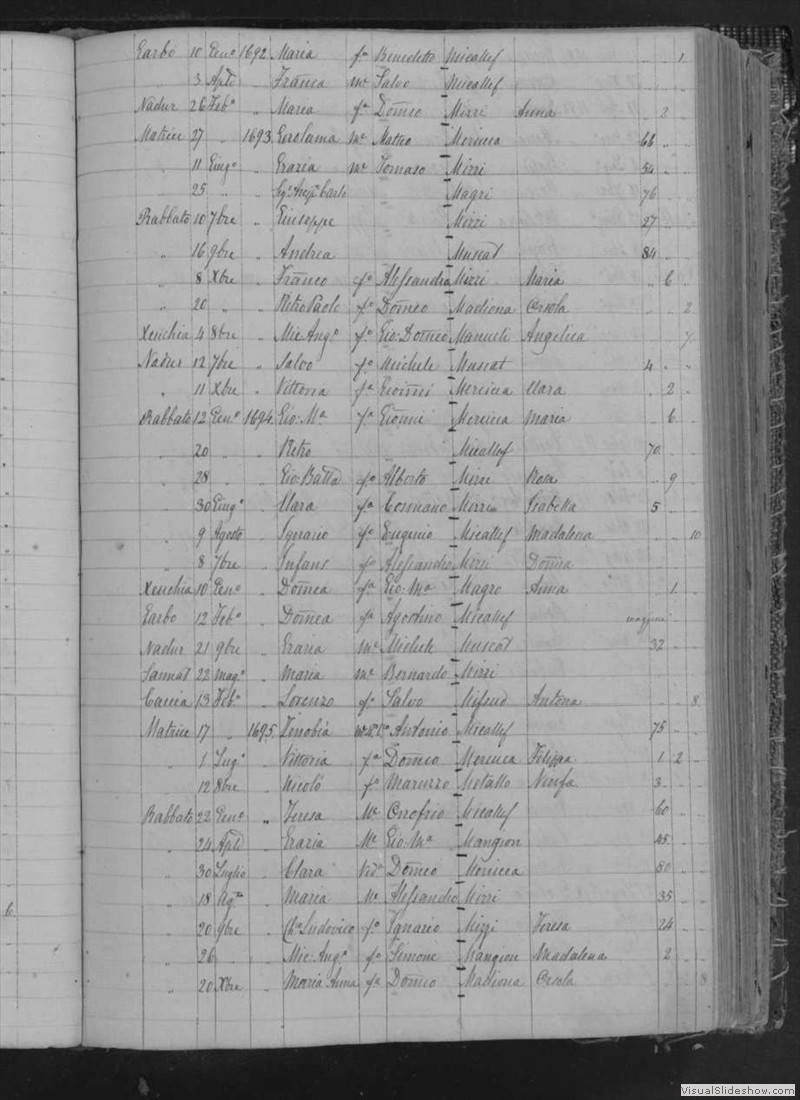 Garbo 10 Gen.o 1692 Maria fa Benedetto Micallef .. .. 1
" 3 Aple " Franca Me Salvo Micallef
Nadur 26 Feb.o " Maria fa Domco Mizzi Anna .. 2 ..
Matrice 27 " 1693 Gerolama Me Matteo Mercieca 66 .. ..
" 11 Giug.o " Grazia Me Tomaso Mizzi 54 .. ..
" 25 " " Carlo Magri 76 .. ..
Rabbato 10 7bre " Giuseppe Mizzi 27 .. ..
" 16 9bre " Andrea Muscat 84 .. ..
" 8 Xbre " Franco fo Alessandro Mizzi Maria .. 6 ..
" 20 " " Pietro Paolo fo Domco Madiona Orsola .. .. 2
Xeuchia 4 8bre " Mic Ang.o fo Gio: Domco Angelica .. .. 7
Nadur 12 7bre " Salvo fo Michele Muscat 4 .. ..
" 11 Xbre " Vittoria fa Gioanni Mercieca Clara .. 2 ..
Rabbato 12 Gen.o 1694 Gio: Ma fo Gioanni Mercieca Maria .. 6 ..
" 20 " " Pietro Micallef 70 .. ..
" 28 " " Gio: Batta fo Alberto Mizzi Rosa .. 9 ..
" 30 Giug.o " Clara fa Cosmano Mizzi Isabella 5 .. ..
" 9 Agosto " Ignazio fo Eugenio Micallef Madalena .. .. 10
" 8 7bre " Infans fo Alessandro Mizzi Domca
Xeuchia 10 Gen.o " Domca fa Gio: Ma Magro Anna .. 1 ..
Garbo 12 Feb.o " Domca fa Agostino Micallef
Nadur 21 9bre " Grazia Me Michele Muscat 32 .. ..
Sannat 22 Mag.o " Maria Me Bernardo Mizzi
Caccia 13 Feb.o " Lorenzo fo Salvo Mifsud Antona .. .. 8
Matrice 17 " 1695 Zenobia Antonio Micallef 75 .. ..
" 1 Lug.o " Vittoria fa Domco Mercieca Filippa 1 2 ..
" 12 8bre " Nicolò fo Maruzzo Metallo Ninfa 3 .. ..
Rabbato 22 Gen.o " Teresa Me Onofrio Micallef 60 .. ..
" 24 Aple " Grazia Me Gio: Ma Mangion 45 .. ..
" 30 Luglio " Clara Vid.a Domco Mercieca 80 .. ..
" 18 Ag.to " Maria Me Alessandro Mizzi 35 .. ..
" 20 9bre " Ch.o Ludovico fo Ignazio Mizzi Teresa 24 .. ..
" 26 " " Mic: Ang.o fo Simone Mangion Madalena 2 ..
" 20 Xbre " Maria Anna fa Domco Madiona Orsola .. .. 8
VisualSlideshow.com